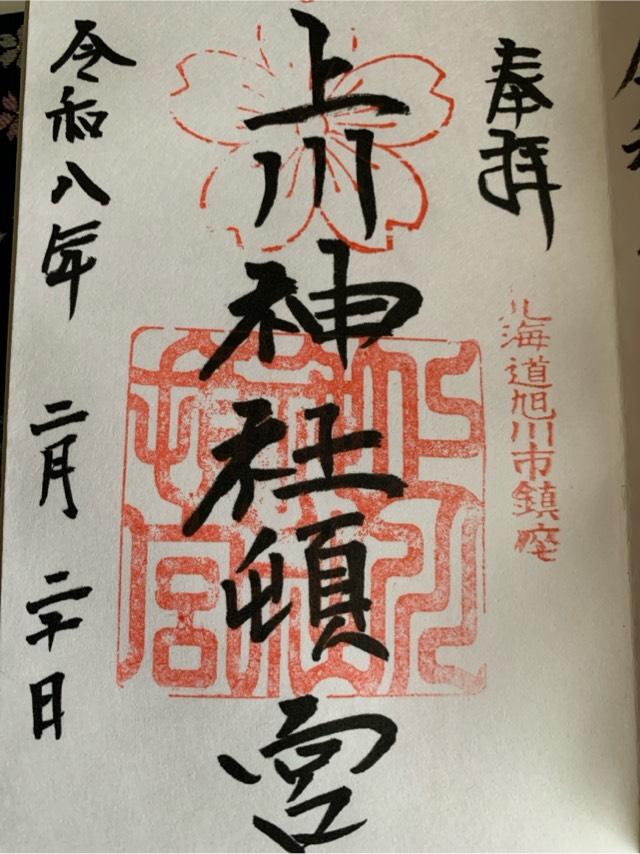 奉拝
北海道旭川市鎮座
上川神社頓宮
令和八年 二月 二十日